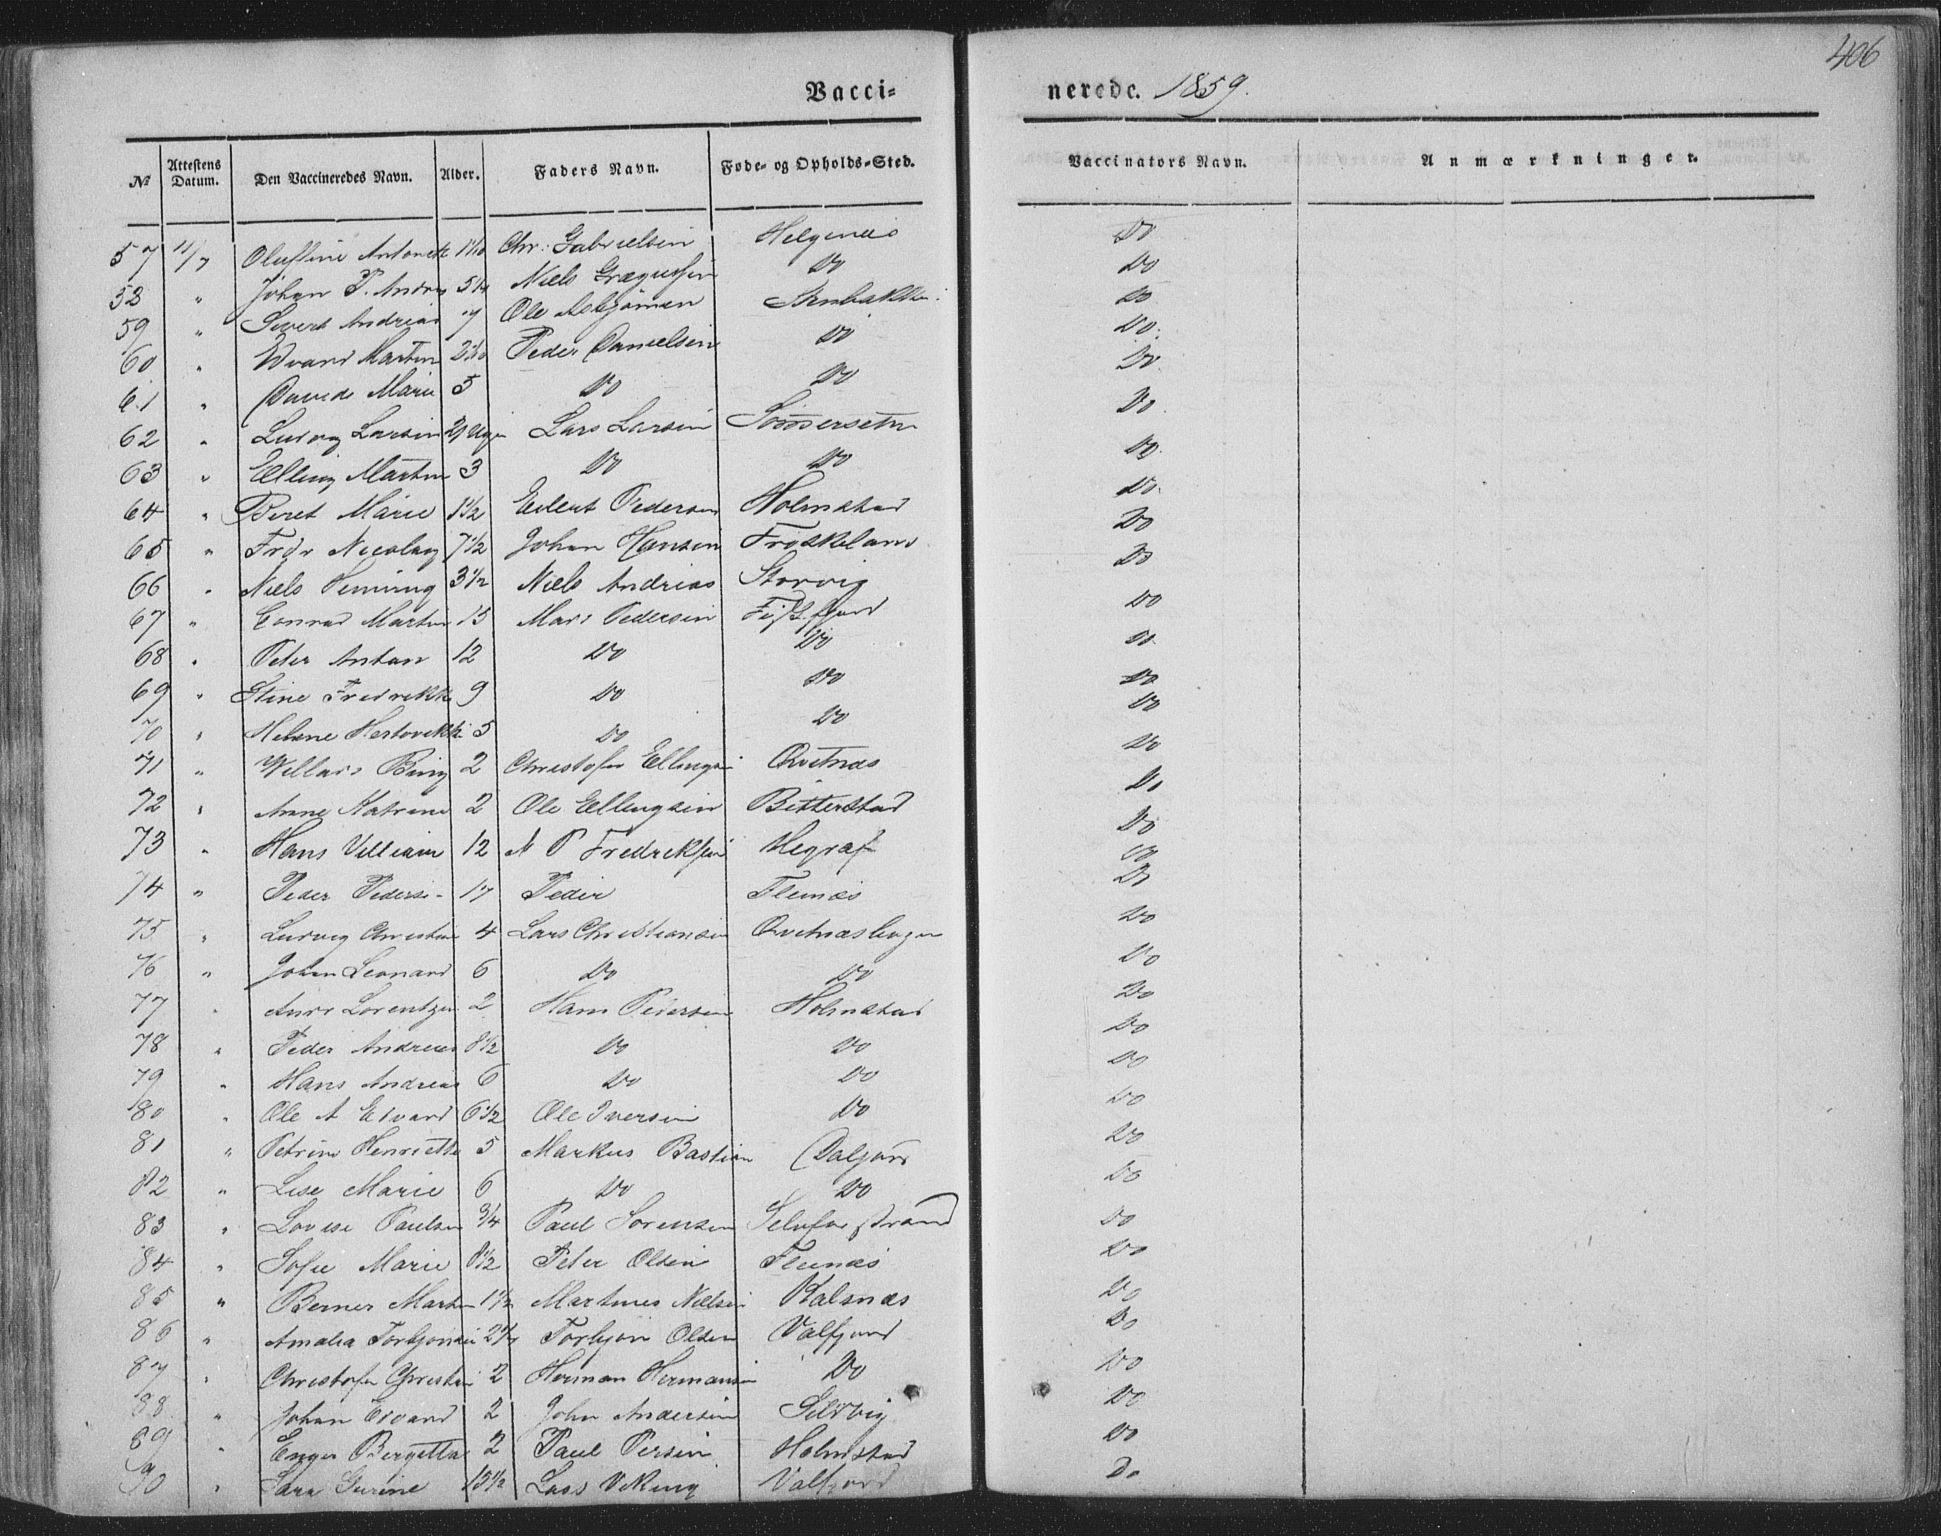 406
Vacci- nerede. 1859.
No Attestens Datum. Den Vaccineredes Navn. Alder. Faders Navn. Føde- og Opholds-Sted. Vaccinators Navn. Anmærkninger.
57 11/7 Olufline Antonett Chr. Gabrielsen Helgenes Do
58 " Johan P. Andreas Niels Do Do
59 " Sivert Andreas 7 Ole Asbjönsen Do
60 " Edvard Martin Peder Danielsen Do Do
61 " Marie 5 Do Do Do
62 " Ludvig Larsen Lars Larsen Sommersetn Do
63 " Elling Martin 3 Do Do Do
64 " Beret Marie 1 1/2 Eilert Pedersen Holmstad Do
65 " Frdr Nicolay 7 1/2 Johan Hansen Froskeland Do
66 " Niels Hening 3 1/2 Niels Andreas Storvig Do
67 " Conrad Martin 15 Mars Pedersen Do
68 " Peter Antan 12 Do Do Do
69 " Stine Fredrikke 9 Do Do Do
70 " Helene Hertvikke 5 Do Do Do
71 " Willars Bing 2 Christofer Ellingsen Qvitnæs Do
72 " Anne Katrine 2 Ole Ellingsen Bitterstad Do
73 " Hans Villiam 12 N P Fredriksen Hegraf Do
74 " Peder Peders- 17 Peder Flenæs Do
75 " Ludvig Christian 4 Lars Christiansen Do
76 " Johan Leonard 6 Do Do Do
77 " Lorentzen 2 Hans Pedersen Holmstad Do
78 " Peder Andreas 8 1/2 Do Do Do
79 " Hans Andreas 6 Do Do Do
80 " Ole A Edvard 6 1/2 Ole Iversen Do Do
81 " Petrine Henriette 5 Markus Bastian Daljord Do
82 " Lise Marie 6 Do Do Do
83 " Lovise Paulsen 3/4 Paul Sorensen Do
84 " Sofie Marie 8 1/2 Peter Olsen Flenæs Do
85 " Berner Martin 1 1/2 Martines Nielsen Kalsnæs Do
86 " Amalia Torbjonsen Torbjön Olsen Valfjord Do
87 " Christofer Christian 2 Herman Hermansen Do Do
88 " Johan Edvard 2 John Andersen Selvig Do
89 " Enger Bergitta 2 Paul Persen Holmstad Do
90 " Sara Gurine 15 1/2 Lars Viking Valfjord Do